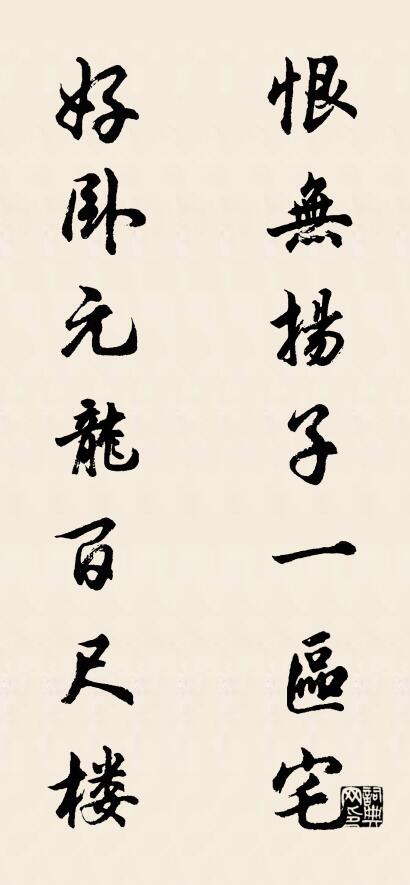 恨無揚子一區宅
好卧元龍百尺楼
詞典网印